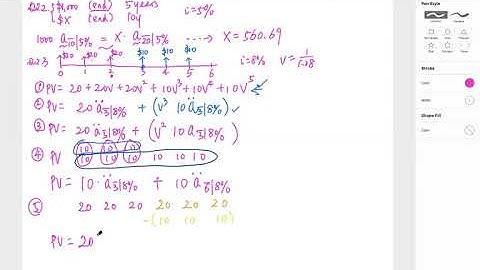 Q22 $1,000 (end) 5 years i=5%
$X (end) 10y
1000 a10|5% = X · a20|5% ----> X = 560.69
Q23 $20 $20 $20 $10 $10 $10 i=8% V = 1/1.08
0 1 2 3 4 5 6
① PV = 20 + 20V + 20V² + 10V³ + 10V⁴ + 10V⁵
② PV = 20 ä3|8% + (V³ 10 ä3|8%) ✓
③ PV = 20 ä3|8% + (V² 10 a3|8%)
④ PV 10 10 10
10 10 10 10 10 10
PV = 10·ä3|8% + 10 ä6|8%
⑤ 20 20 20 20 20 20
-(10 10 10)
PV = 20
Pen Style
Stroke
Color
Width
Shape Fill
Color